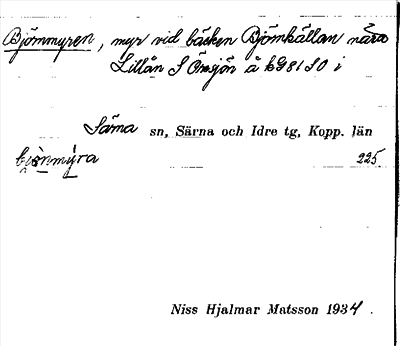 Björnmyren, myr vid bäcken Björnkällan nära
Lillån S Örasjön å bg 81 SO i
Särna sn, Särna och Idre tg, Kopp. län
bjö̀nmỵ́ra 225
Niss Hjalmar Matsson 1934.